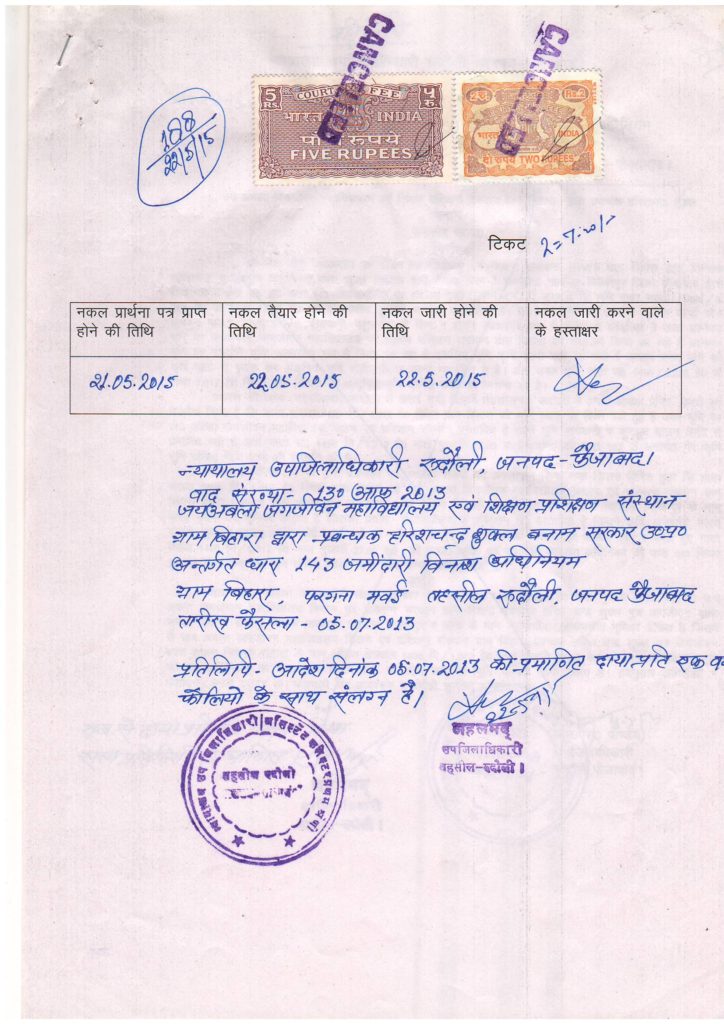 CANCELLED
CANCELLED
5 COURT FEE ५
RS. भारत INDIA रु.
रूपये
FIVE RUPEES
भारत INDIA
दो रुपये TWO RUPEES
188
22/5/15
टिकट
नकल प्रार्थना पत्र प्राप्त होने की तिथि
नकल तैयार होने की तिथि
नकल जारी होने की तिथि
नकल जारी करने वाले के हस्ताक्षर
21.05.2015 22.05.2015 22.5.2015
न्यायालय उपजिलाधिकारी रूदौली, जनपद-फैजाबाद।
वाद संख्या- 130 2013
जगजीवन महाविद्यालय एवं शिक्षण प्रशिक्षण संस्थान
ग्राम बिहारा द्वारा प्रबन्धक हरिशचन्द्र शुक्ल बनाम सरकार उ०प्र०
अन्तर्गत धारा 143 जमींदारी विनाश अधिनियम
ग्राम बिहारा, परगना मवई तहसील रूदौली, जनपद फैजाबाद
तारीख फैसला - 05.07.2013
प्रतिलिपि- आदेश दिनांक 05.07.2013 की प्रमाणित प्रति एक
के साथ संलग्न है।
उपजिलाधिकारी
तहसील-रूदौली।